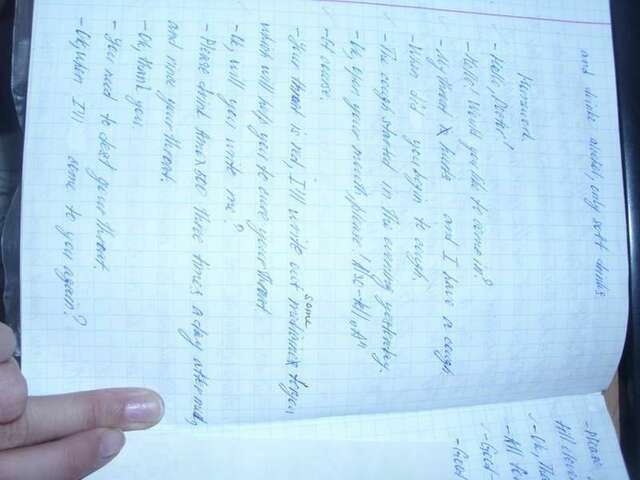 and drinks alcohol, only soft drinks
- Hello, Doctor!
- Hello! Would you like to come in?
- My throat hurts and I have a cough
- When did you begin to cough.
- The cough started in the evening yesterday.
- Ok, open your mouth, please!
- Of course.
- Your throat is red, I'll write out some to you
which will help you to cure your throat
- Ok, will you write me?
- Please drink three times a day after meals,
and rinse your throat.
- Ok, thank you.
- You need to your throat.
- Ok, when I'll come to you again?
- Please
till
- Ok, Tha
- All
- Good -
- Good